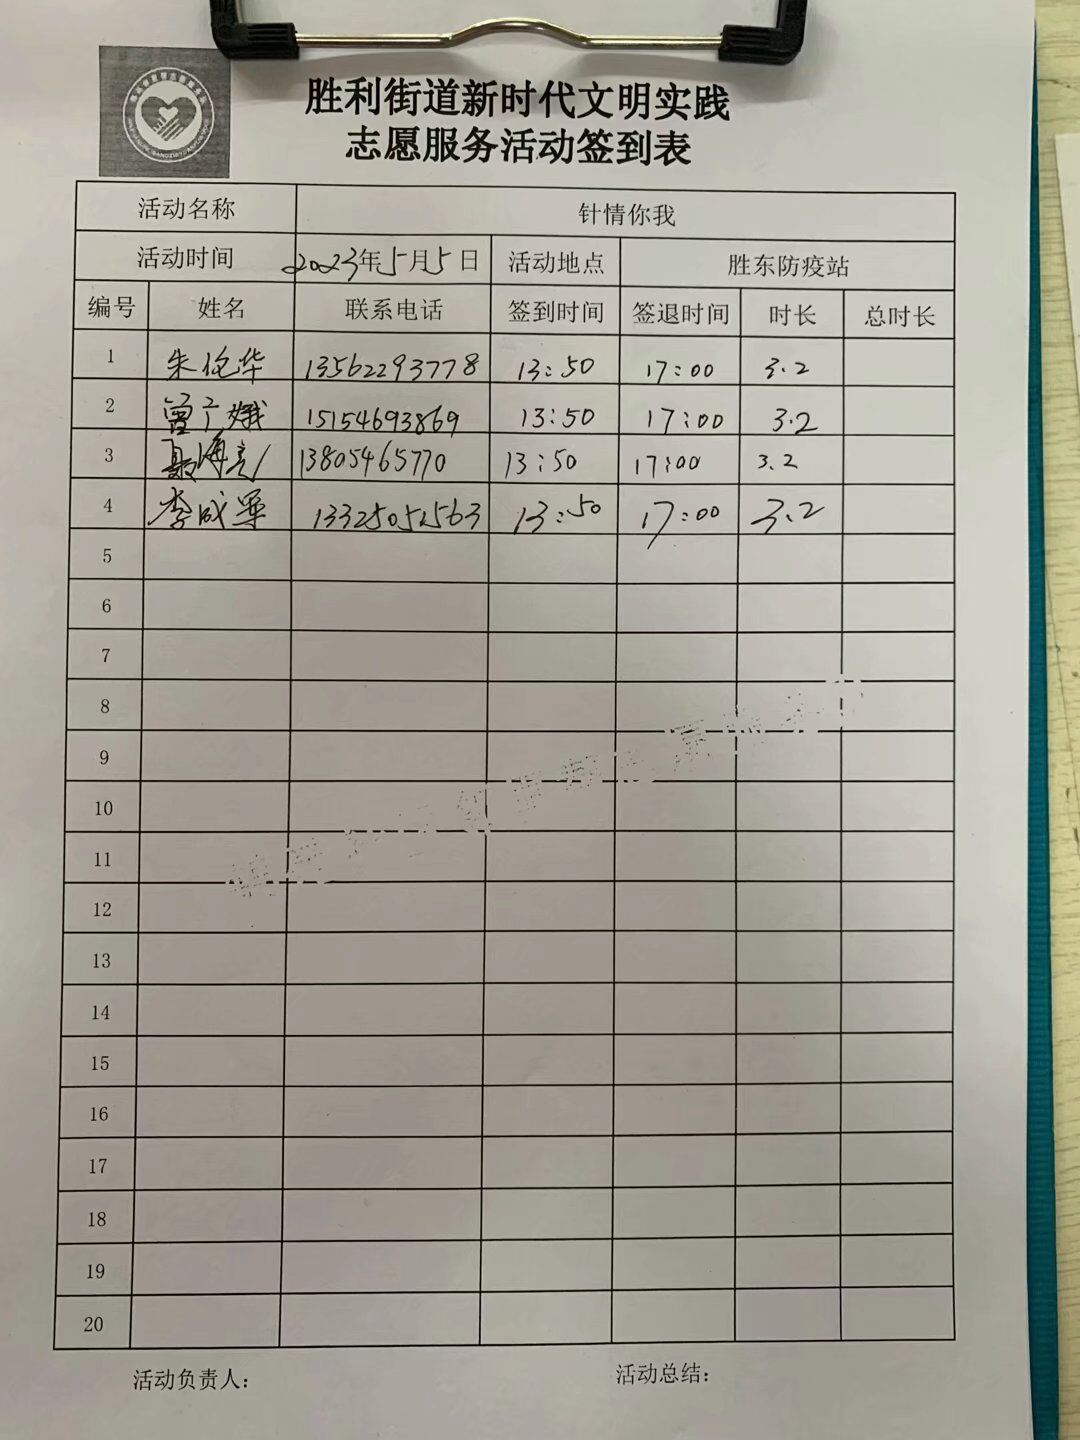 胜利街道新时代文明实践
志愿服务活动签到表
活动名称 针情你我
活动时间 2023年5月5日 活动地点 胜东防疫站
编号 姓名 联系电话 签到时间 签退时间 时长 总时长
1 朱伦华 13562293778 13:50 17:00 3.2
2 曾广娥 15154693869 13:50 17:00 3.2
3 聂海亮 13805465770 13:50 17:00 3.2
4 李成军 13:50 17:00 3.2
5
6
7
8
9
10
11
12
13
14
15
16
17
18
19
20
活动负责人: 活动总结: